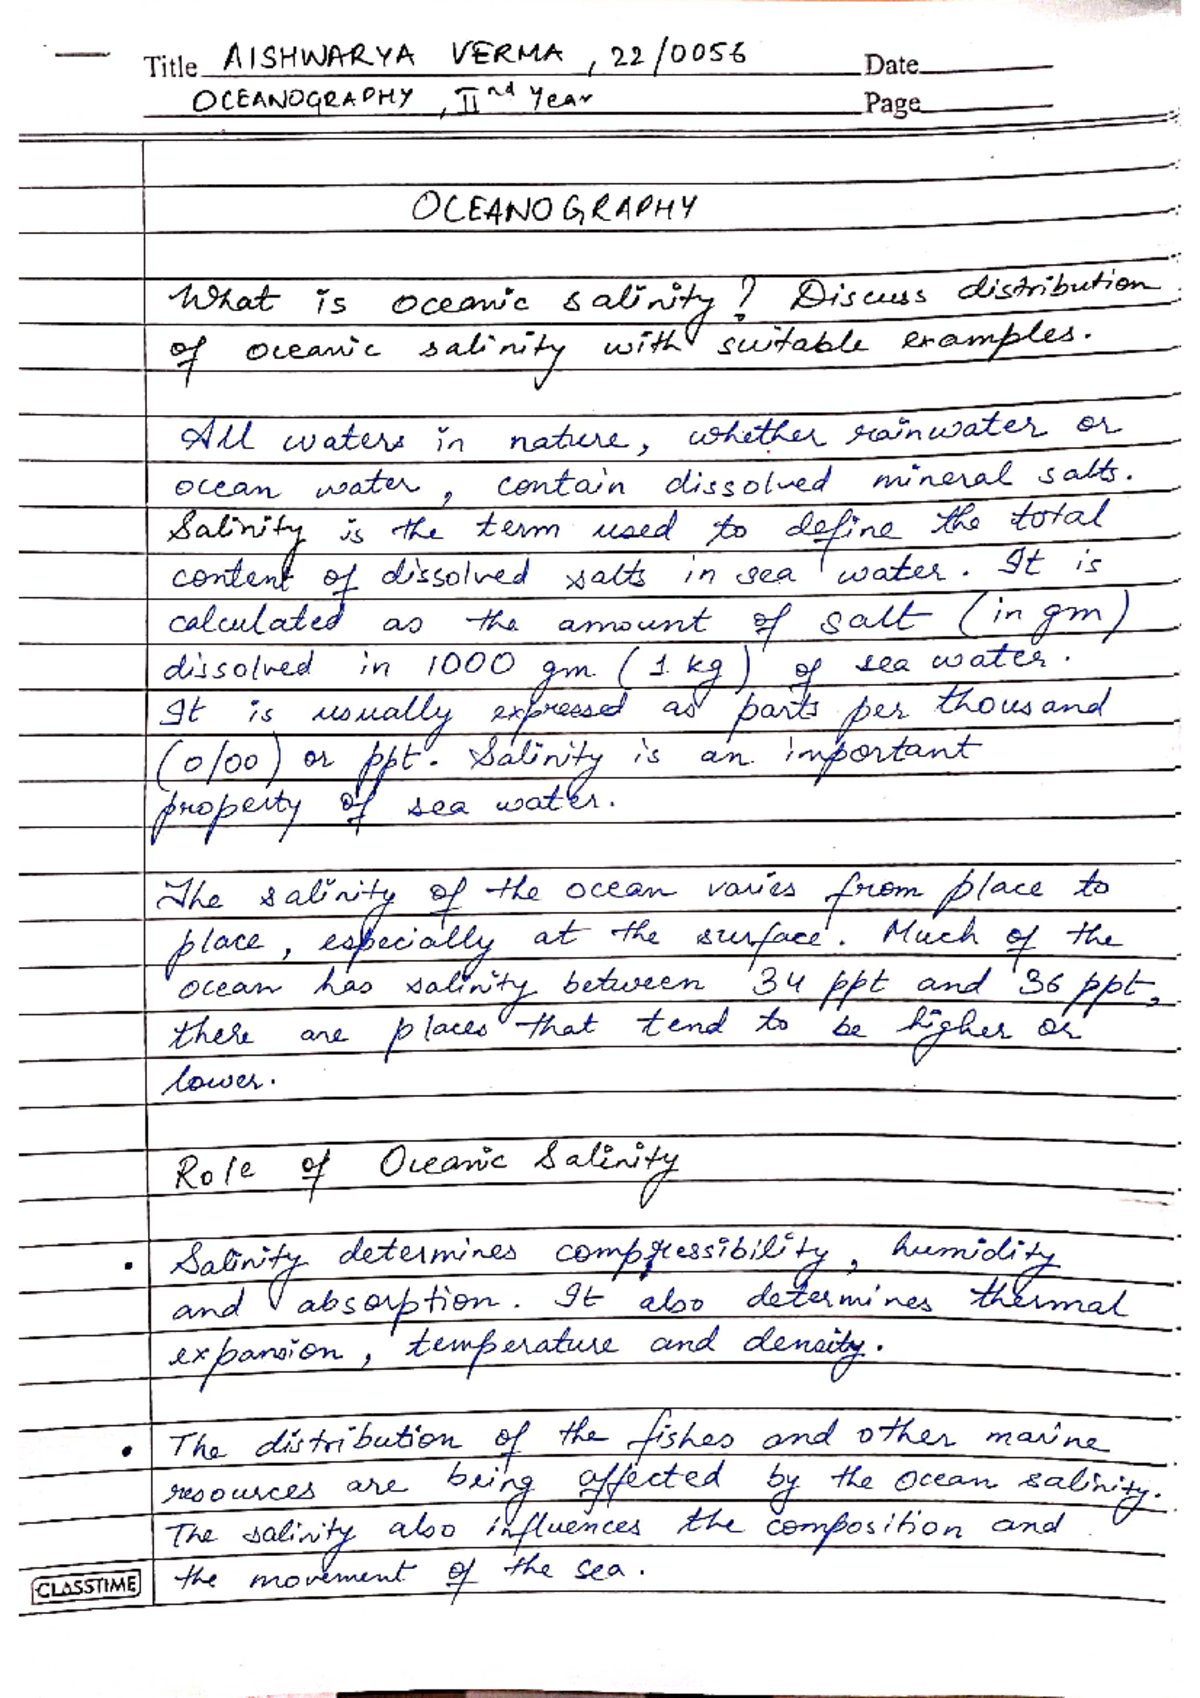 Title AISHWARYA VERMA, 22/0056 Date
OCEANOGRAPHY, IInd Year Page
OCEANOGRAPHY
What is oceanic salinity? Discuss distribution
of oceanic salinity with suitable examples.
All waters in nature, whether rainwater or
ocean water, contain dissolved mineral salts.
Salinity is the term used to define the total
content of dissolved salts in sea water. It is
calculated as the amount of salt (in gm)
dissolved in 1000 gm (1 kg) of sea water.
It is usually expressed as parts per thousand
(0/00) or ppt. Salinity is an important
property of sea water.
The salinity of the ocean varies from place to
place, especially at the surface. Much of the
ocean has salinity between 34 ppt and 36 ppt,
there are places that tend to be higher or
lower.
Role of Oceanic Salinity
• Salinity determines compressibility, humidity
and absorption. It also determines thermal
expansion, temperature and density.
• The distribution of the fishes and other marine
resources are being affected by the ocean salinity.
The salinity also influences the composition and
the movement of the sea.
CLASSTIME